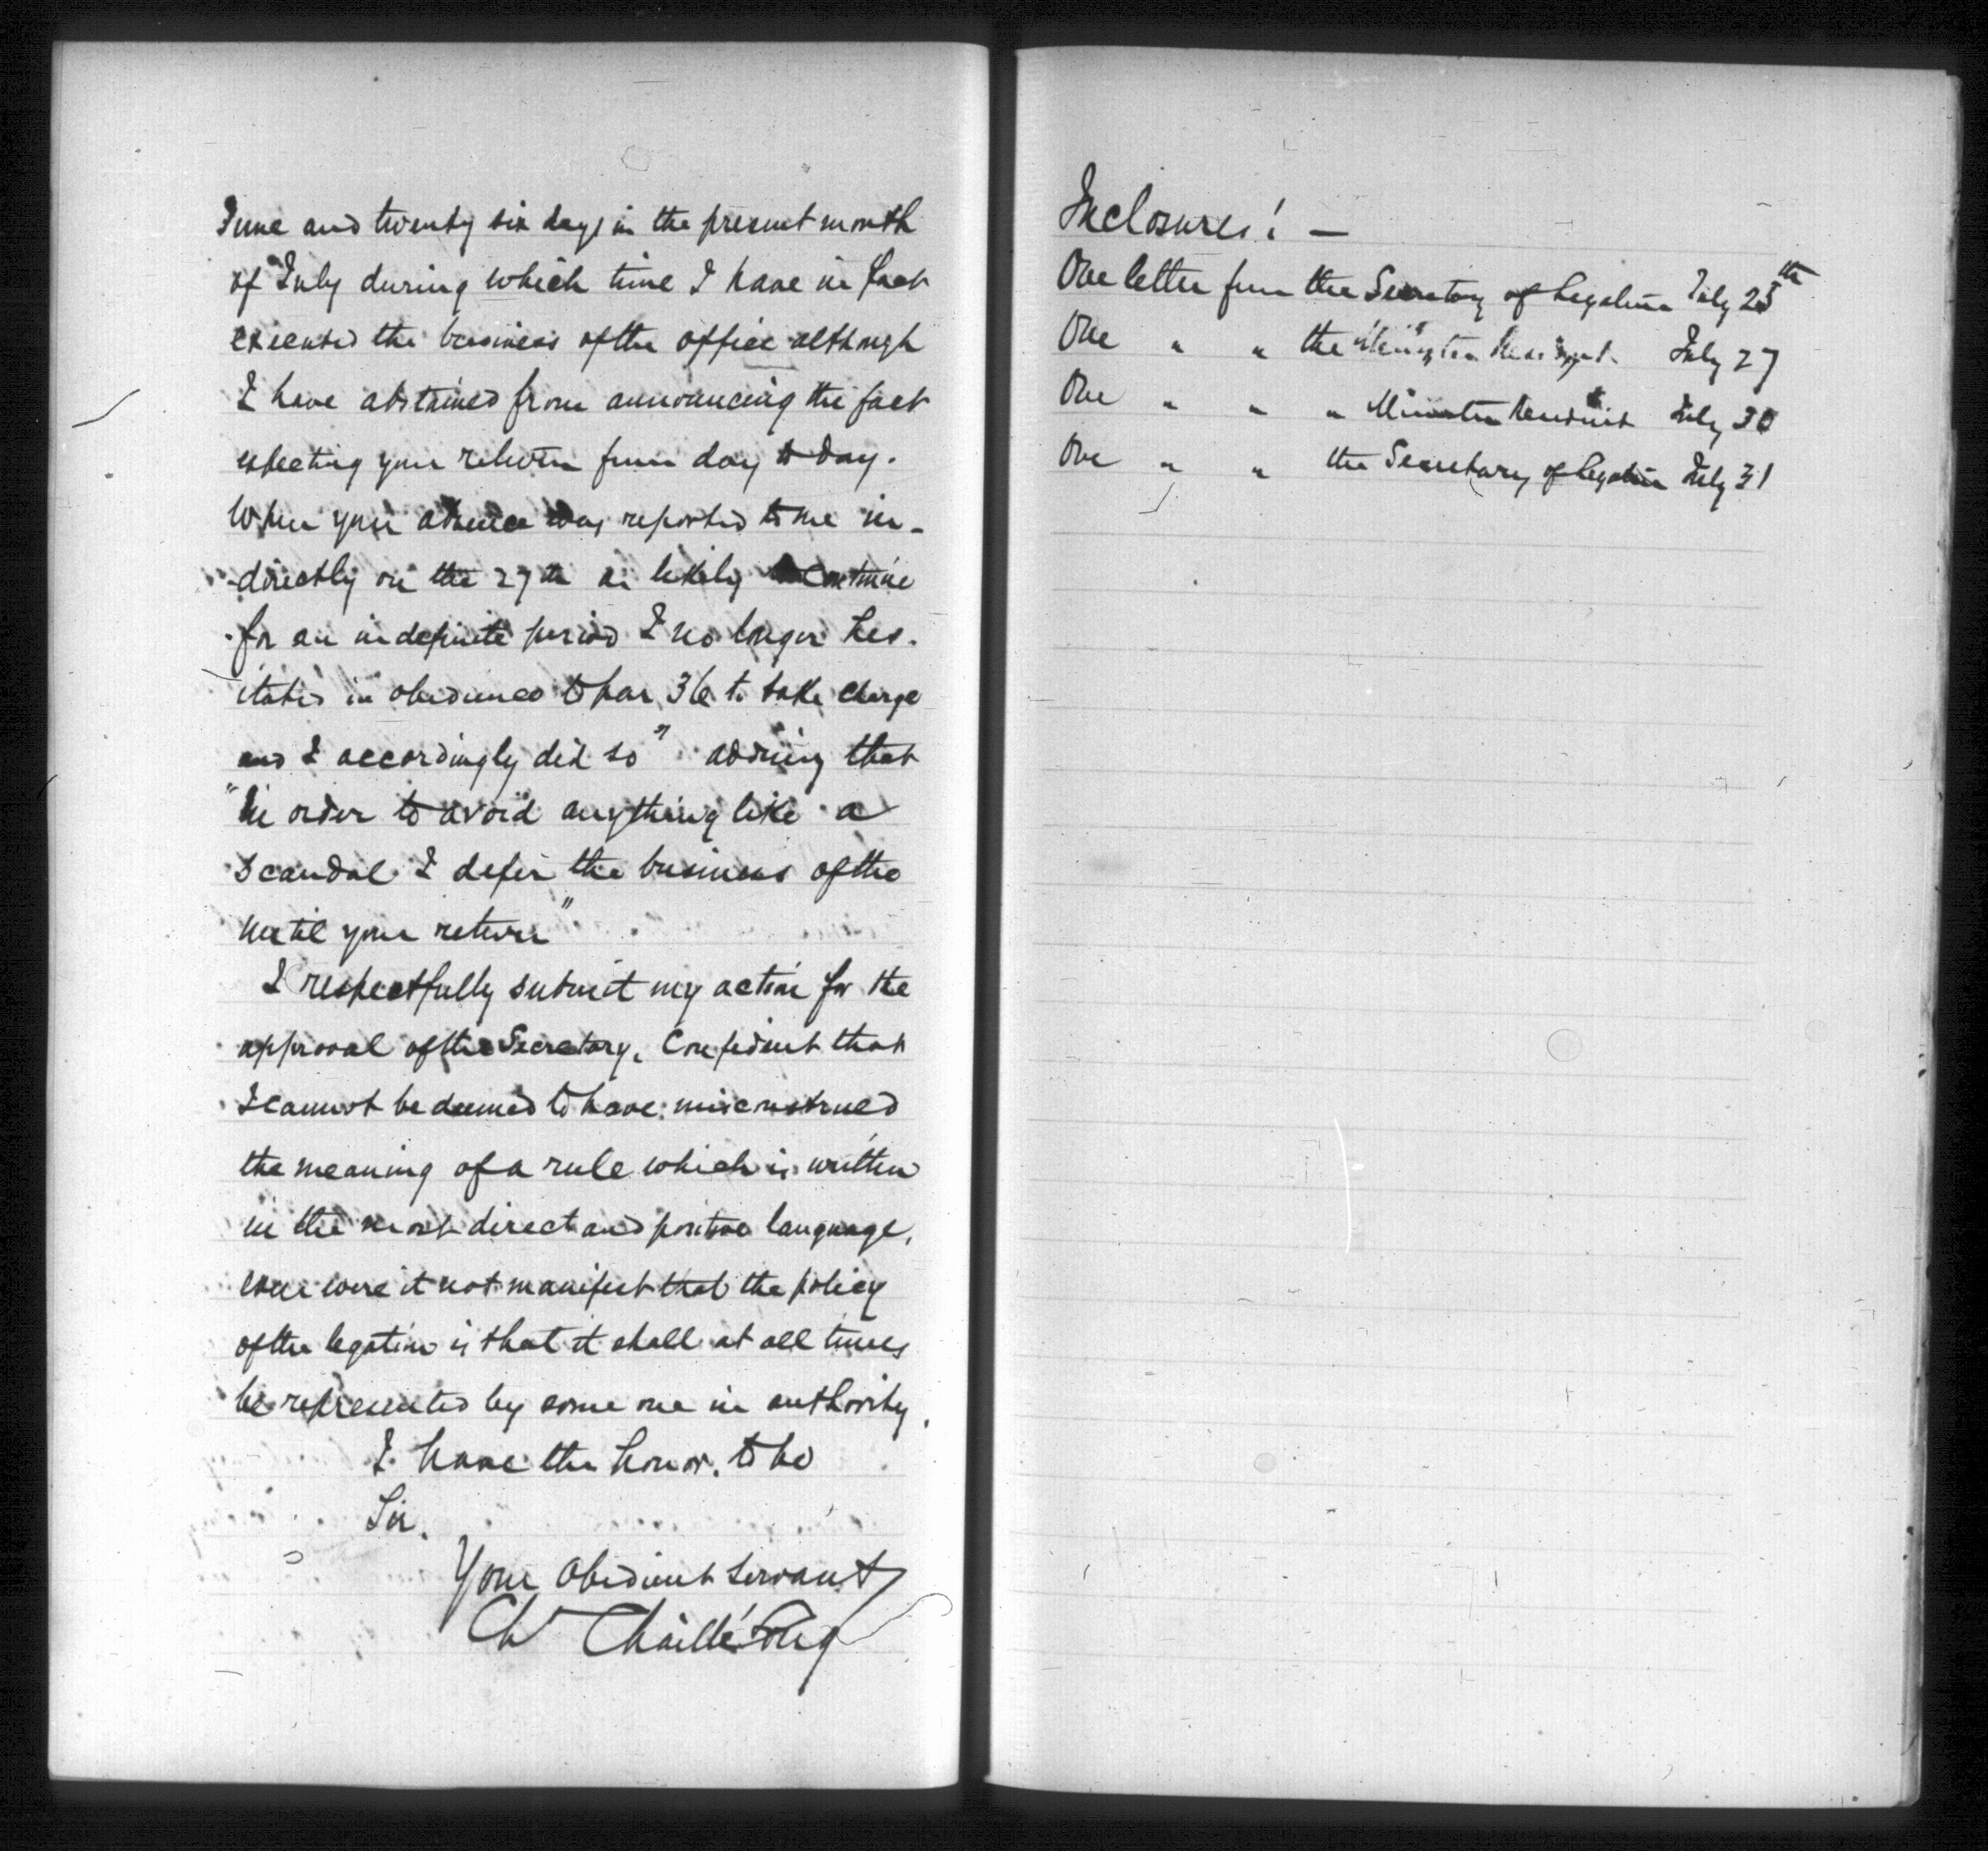 June and twenty six days in the present month
of July during which time I have in fact
executed the business of the office although
I have abstained from announcing the fact
expecting your return from day to day.
When your absence was reported to me in-
directly on the 27th as likely to continue
for an indefinite period I no longer hes-
itated in obedience to par 36 to take charge
and I accordingly did so" adding that
"in order to avoid anything like a
scandal I defer the business of the
until your return"
I respectfully submit my action for the
approval of the Secretary, Confident that
I cannot be deemed to have misconstrued
the meaning of a rule which is written
in the most direct and positive language,
even were it not manifest that the policy
of the legation is that it shall at all times
be represented by some one in authority.
I have the honor, to be
Sir.
Your obedient servant
Ch Chaillé Long
Inclosures: —
One letter from the Secretary of Legation July 25th
One " " the Minister Resident July 27
One " " " Minister Resident July 30
One " " the Secretary of Legation July 31